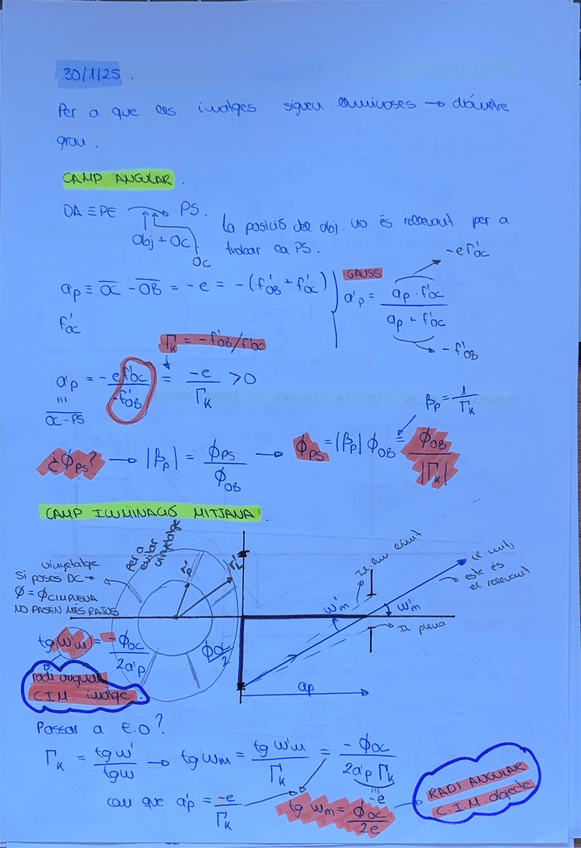 30/1/25.
Per a que les imatges siguen lluminoses → diàmetre
gran.
CAMP ANGULAR.
DA ≡ PE → PS.
Obj + Oc
Oc
La posició del obj. no és rellevant per a
trobar la PS.
ap ≡ OC - OB = -e = -(f'OB + f'OC)
f'OC
GAUSS
a'p = ap · f'OC / ap + f'OC
-e f'OC
-f'OB
ΓK = -f'OB/f'OC
a'p = -e f'OC / -f'OB = -e / ΓK > 0
OC-PS
βp = 1/ΓK
¿ϕPS? → |βp| = ϕPS / ϕOB → ϕPS = |βp| ϕOB = ϕOB / |ΓK|
CAMP ILUMINACIÓ MITJANA.
vinyetatge
si poses DC →
ϕ = ϕCIMPLENA
NO PASEN MÉS RAJOS
per a evitar vinyetatge
r'p
r'L
Il·lum
W'm
W'm
este és
el rellevant
Il plena
ϕOC / 2
a'p
tg W'm = -ϕOC / 2a'p
radi angular
C.I.M imatge.
Passar a E.O?
ΓK = tg w' / tg w → tg wm = tg w'm / ΓK = -ϕOC / 2a'p ΓK
-e
com que a'p = -e / ΓK
tg wm = ϕOC / 2e
RADI ANGULAR
C.I.M. objecte